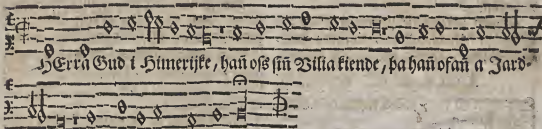 HErra Gud i Himerijke, hañ oß sin Vilia kiende, þa hañ ofañ a Jard-